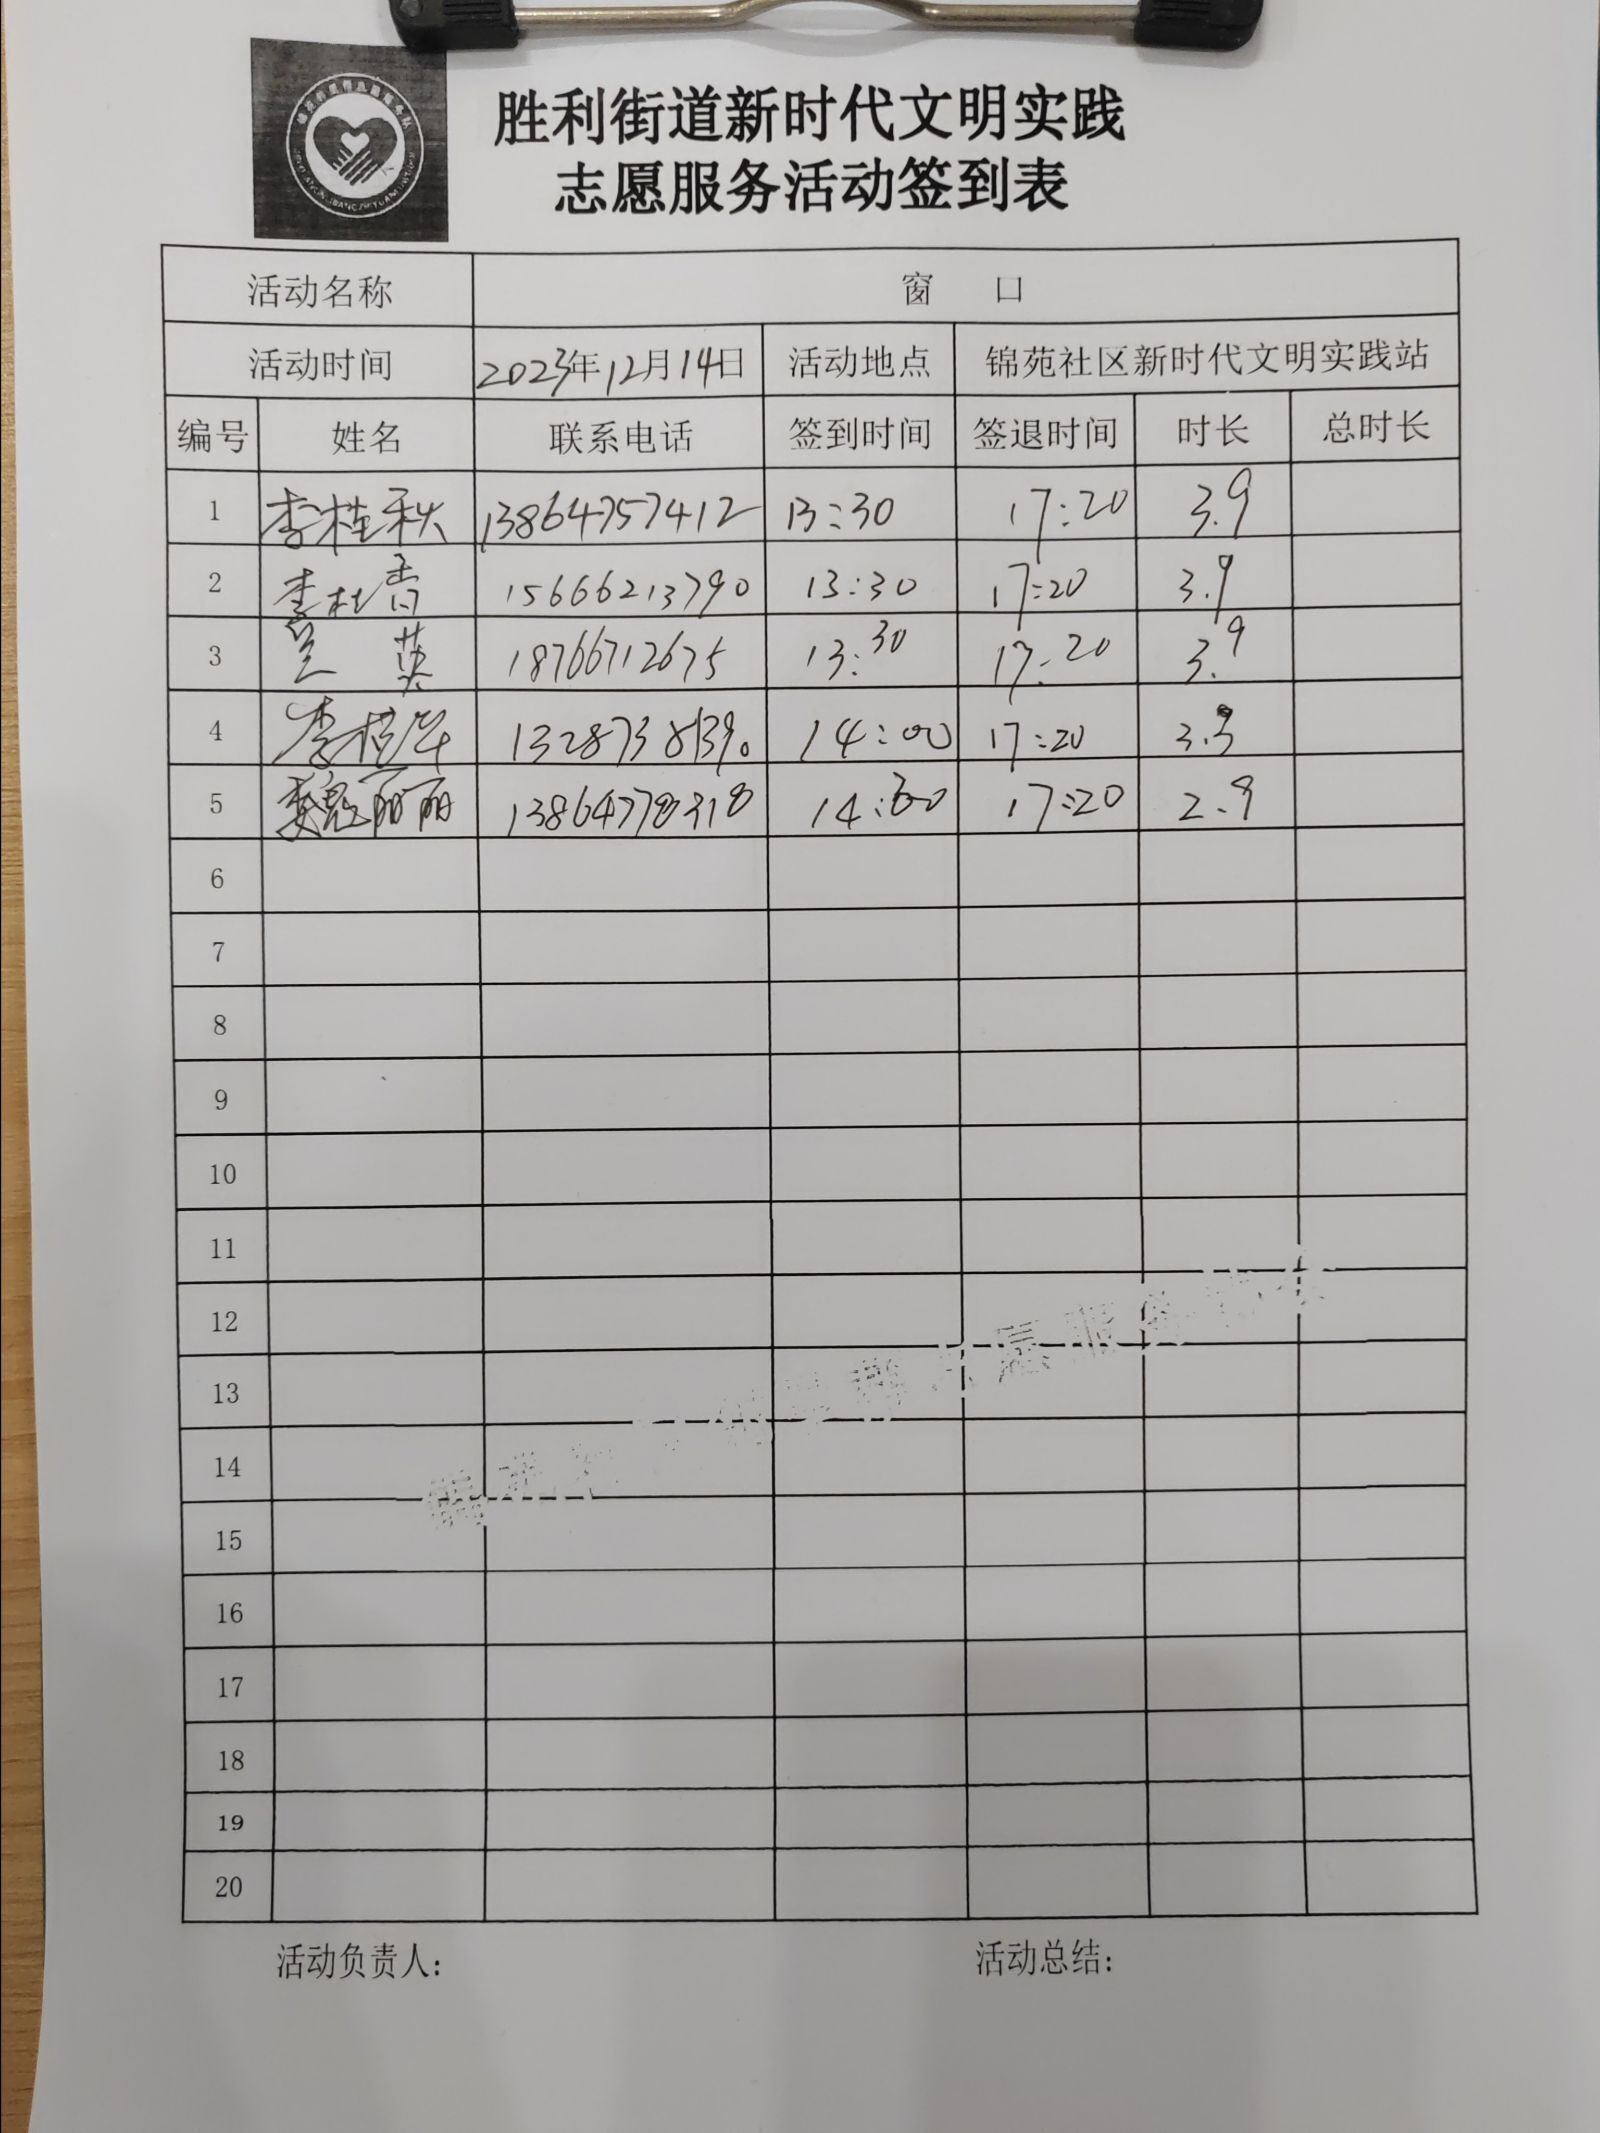 胜利街道新时代文明实践
志愿服务活动签到表
活动名称 窗 口
活动时间 2023年12月14日 活动地点 锦苑社区新时代文明实践站
编号 姓名 联系电话 签到时间 签退时间 时长 总时长
1 李桂秋 13864757412 13:30 17:20 3.9
2 李杜香 15666213790 13:30 17:20 3.9
3 兰英 18766712675 13:30 17:20 3.9
4 李桂华 13287381390 14:00 17:20 3.3
5 魏丽丽 14: 17:20 2.9
6
7
8
9
10
11
12
13
14
15
16
17
18
19
20
活动负责人: 活动总结: